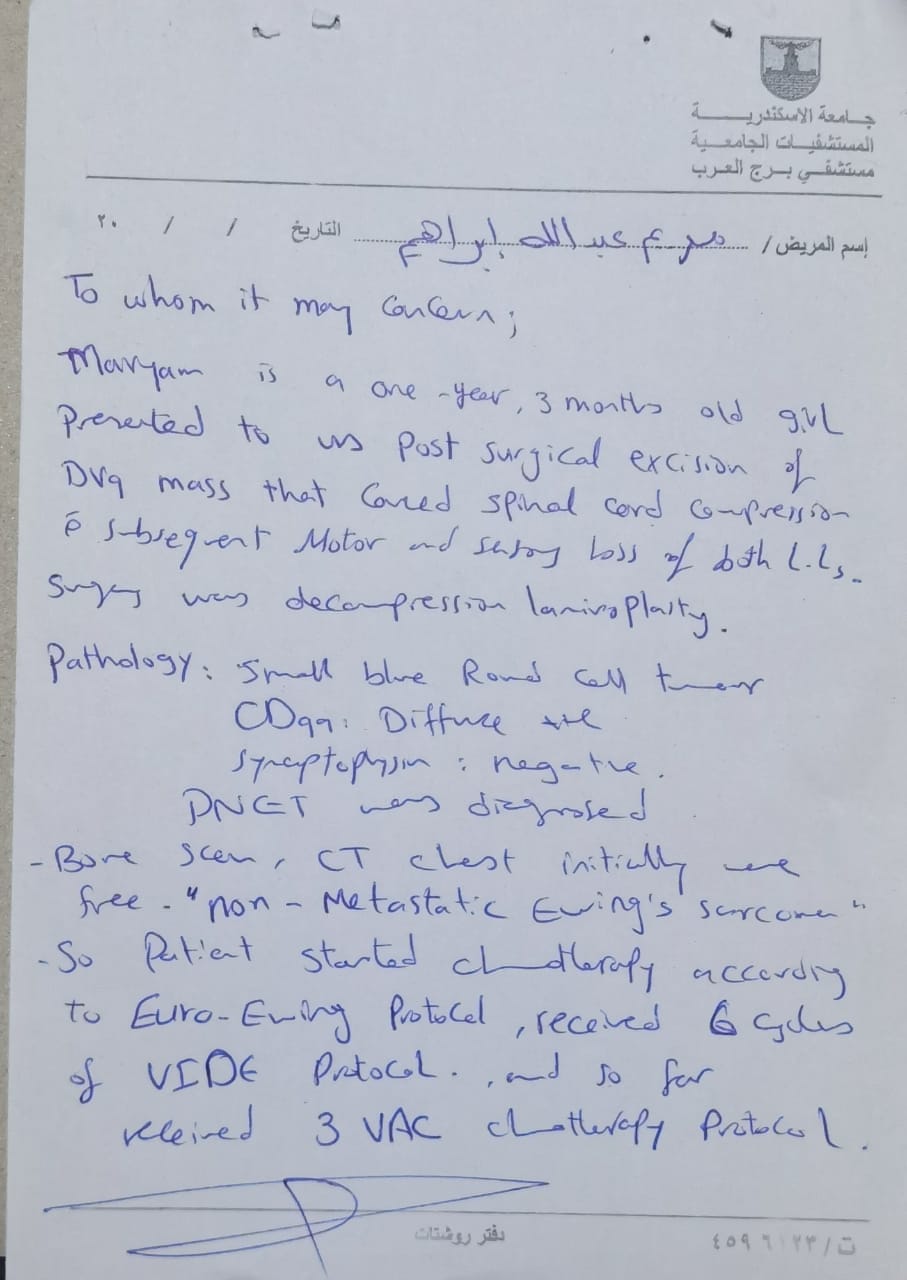 جامعة الاسكندرية
المستشفيات الجامعية
مستشفي برج العرب
إسم المريض / مريم عبدالله ابراهيم التاريخ / / ٢٠
To whom it may concern;
Maryam is a one-year, 3 months old girl
presented to us post surgical excision of
mass that caused spinal cord compression
c̄ subsequent Motor and sensory loss of both L.Ls.
Surgery was decompression laminoplasty.
Pathology: Small blue Round cell tumor
CD99: Diffuse +ve
Synaptophysin : negative.
PNET was diagnosed
- Bone scan, CT chest initially were
free - "non - Metastatic Ewing's sarcoma"
- So Patient started chemotherapy according
to Euro-Ewing Protocol, received 6 cycles
of VIDE Protocol. , and so far
received 3 VAC chemotherapy Protocol.
دفتر روشتات